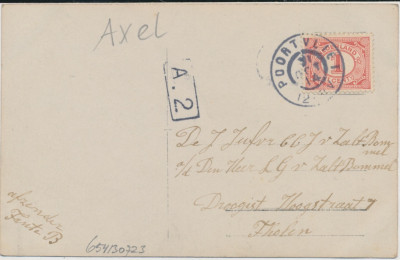 Axel
POORTVLIET
12
A.2
De J Jufvr GGJ v Zalt Bom
mel
a/d Den Heer L G v Zalt Bommel
Drogist Hoogstraat 7
Tholen
afzender
Tante B
654130723